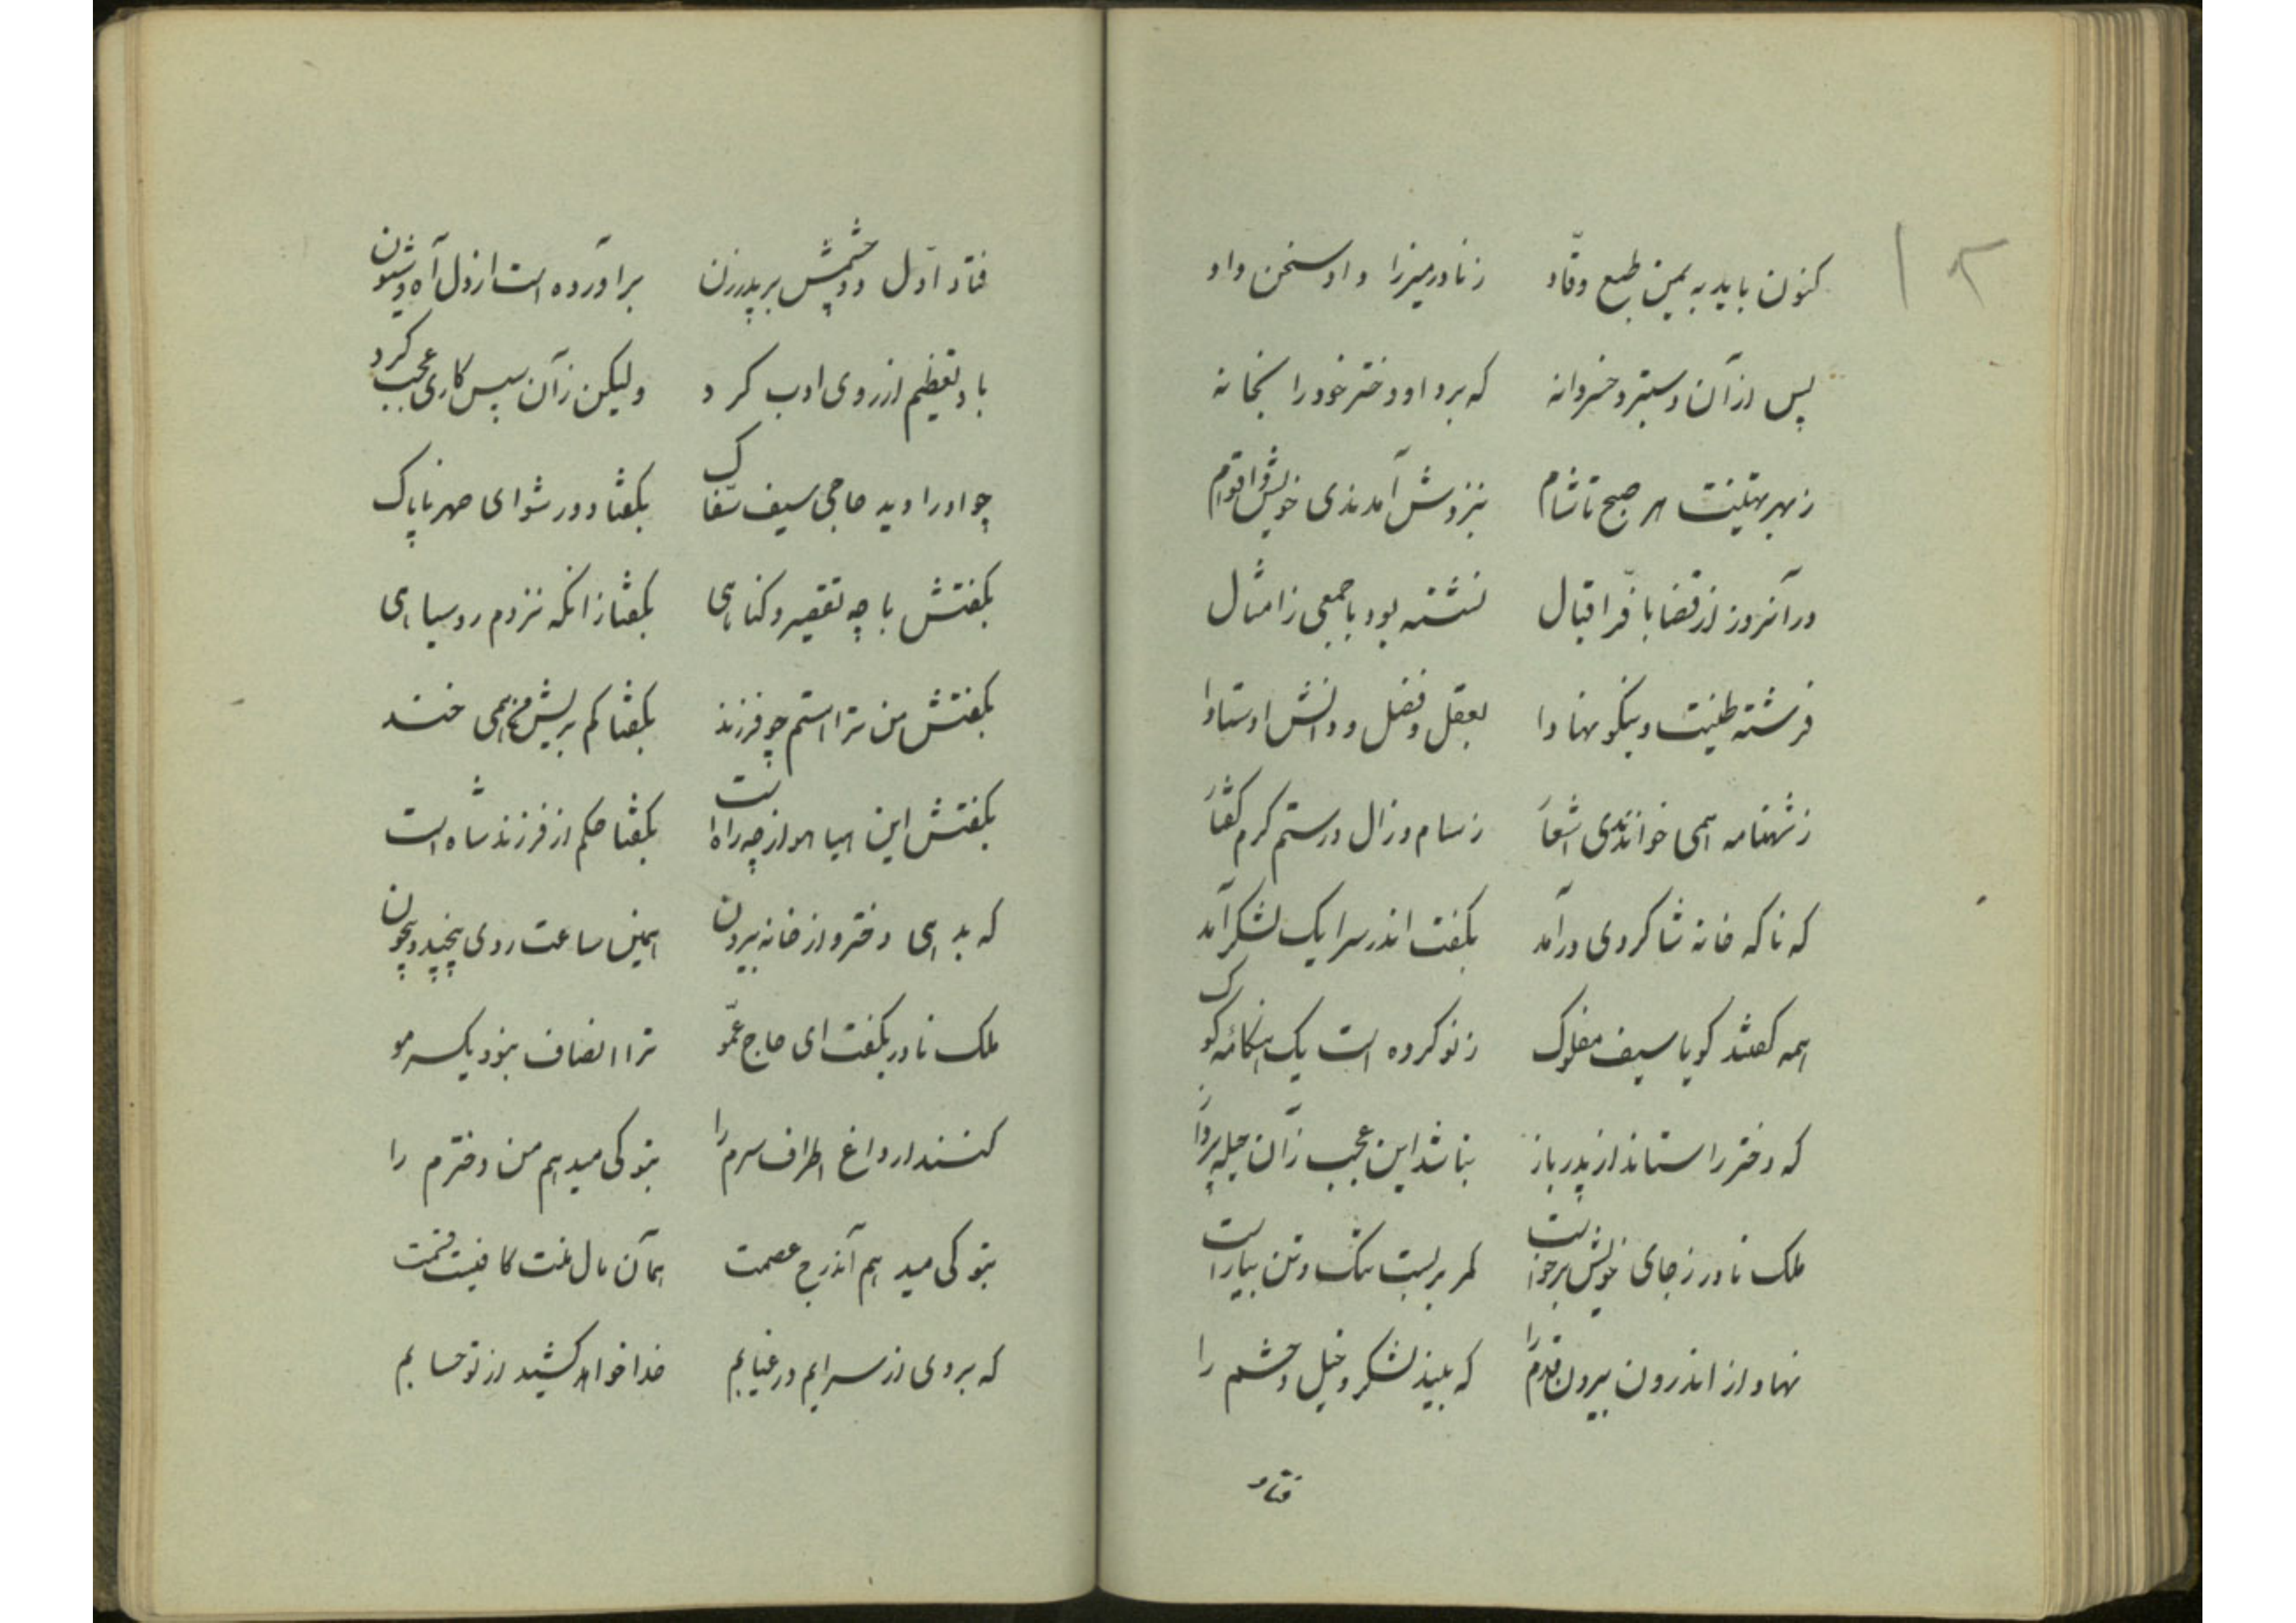 ۱۲
کنون باید به یمن طبع وقّاد ز نادر میرزا داد سخن داد
پس از آن دستبرد خسروانه که برد او دختر خود را بخانه
ز بهر تهنیت هر صبح تا شام بنزدش آمدندی خویش و اقوام
در آنروز از قضا با فرّ اقبال نشسته بود با جمعی ز امثال
فرشته طینت و نیکو نهادا بعقل و فضل و دانش اوستادا
ز شهنامه همی خواندندی اشعار ز سام و زال و رستم گرم گفتار
که ناگه خانه شاگردی درآمد بگفت اندر سرا یک لشکر آمد
همه گفتند گویا سیف مفلوک ز نو کرده است یک هنگامه کوک
که دختر را ستاند از پدر باز نباشد این عجب زآن حیله پرداز
ملک نادر ز جای خویش برخواست کمر بربست تنگ و تن بیاراست
نهاد از اندرون بیرون قدم را که بیند لشکر و خیل و حشم را
فتاد
فتاد اوّل دو چشمش بر پدرزن برآورده است از دل آه و شیون
باو تعظیم از روی ادب کرد ولیکن زآن سپس کاری عجب کرد
چو او را دید حاجی سیف سفّاک بگفتا دور شو ای صهر ناپاک
بگفتش با چه تقصیر و گناهی بگفتا زانکه نزدم روسیاهی
بگفتش من ترا استم چو فرزند بگفتا کم بریش من همی خند
بگفتش این هیاهو از چه راه است بگفتا حکم از فرزند شاه است
که بدهی دختر و از خانه بیرون همین ساعت روی بیچند و بیچون
ملک نادر بگفت ای حاج عمّو ترا انصاف نبود یکسر مو
کنند ار داغ اطراف سرم را بتو کی میدهم من دخترم را
بتو کی میدهم آن درج عصمت همان مال منت کافیست قسمت
که بردی از سرایم در غیابم خدا خواهد کشید از تو حسابم